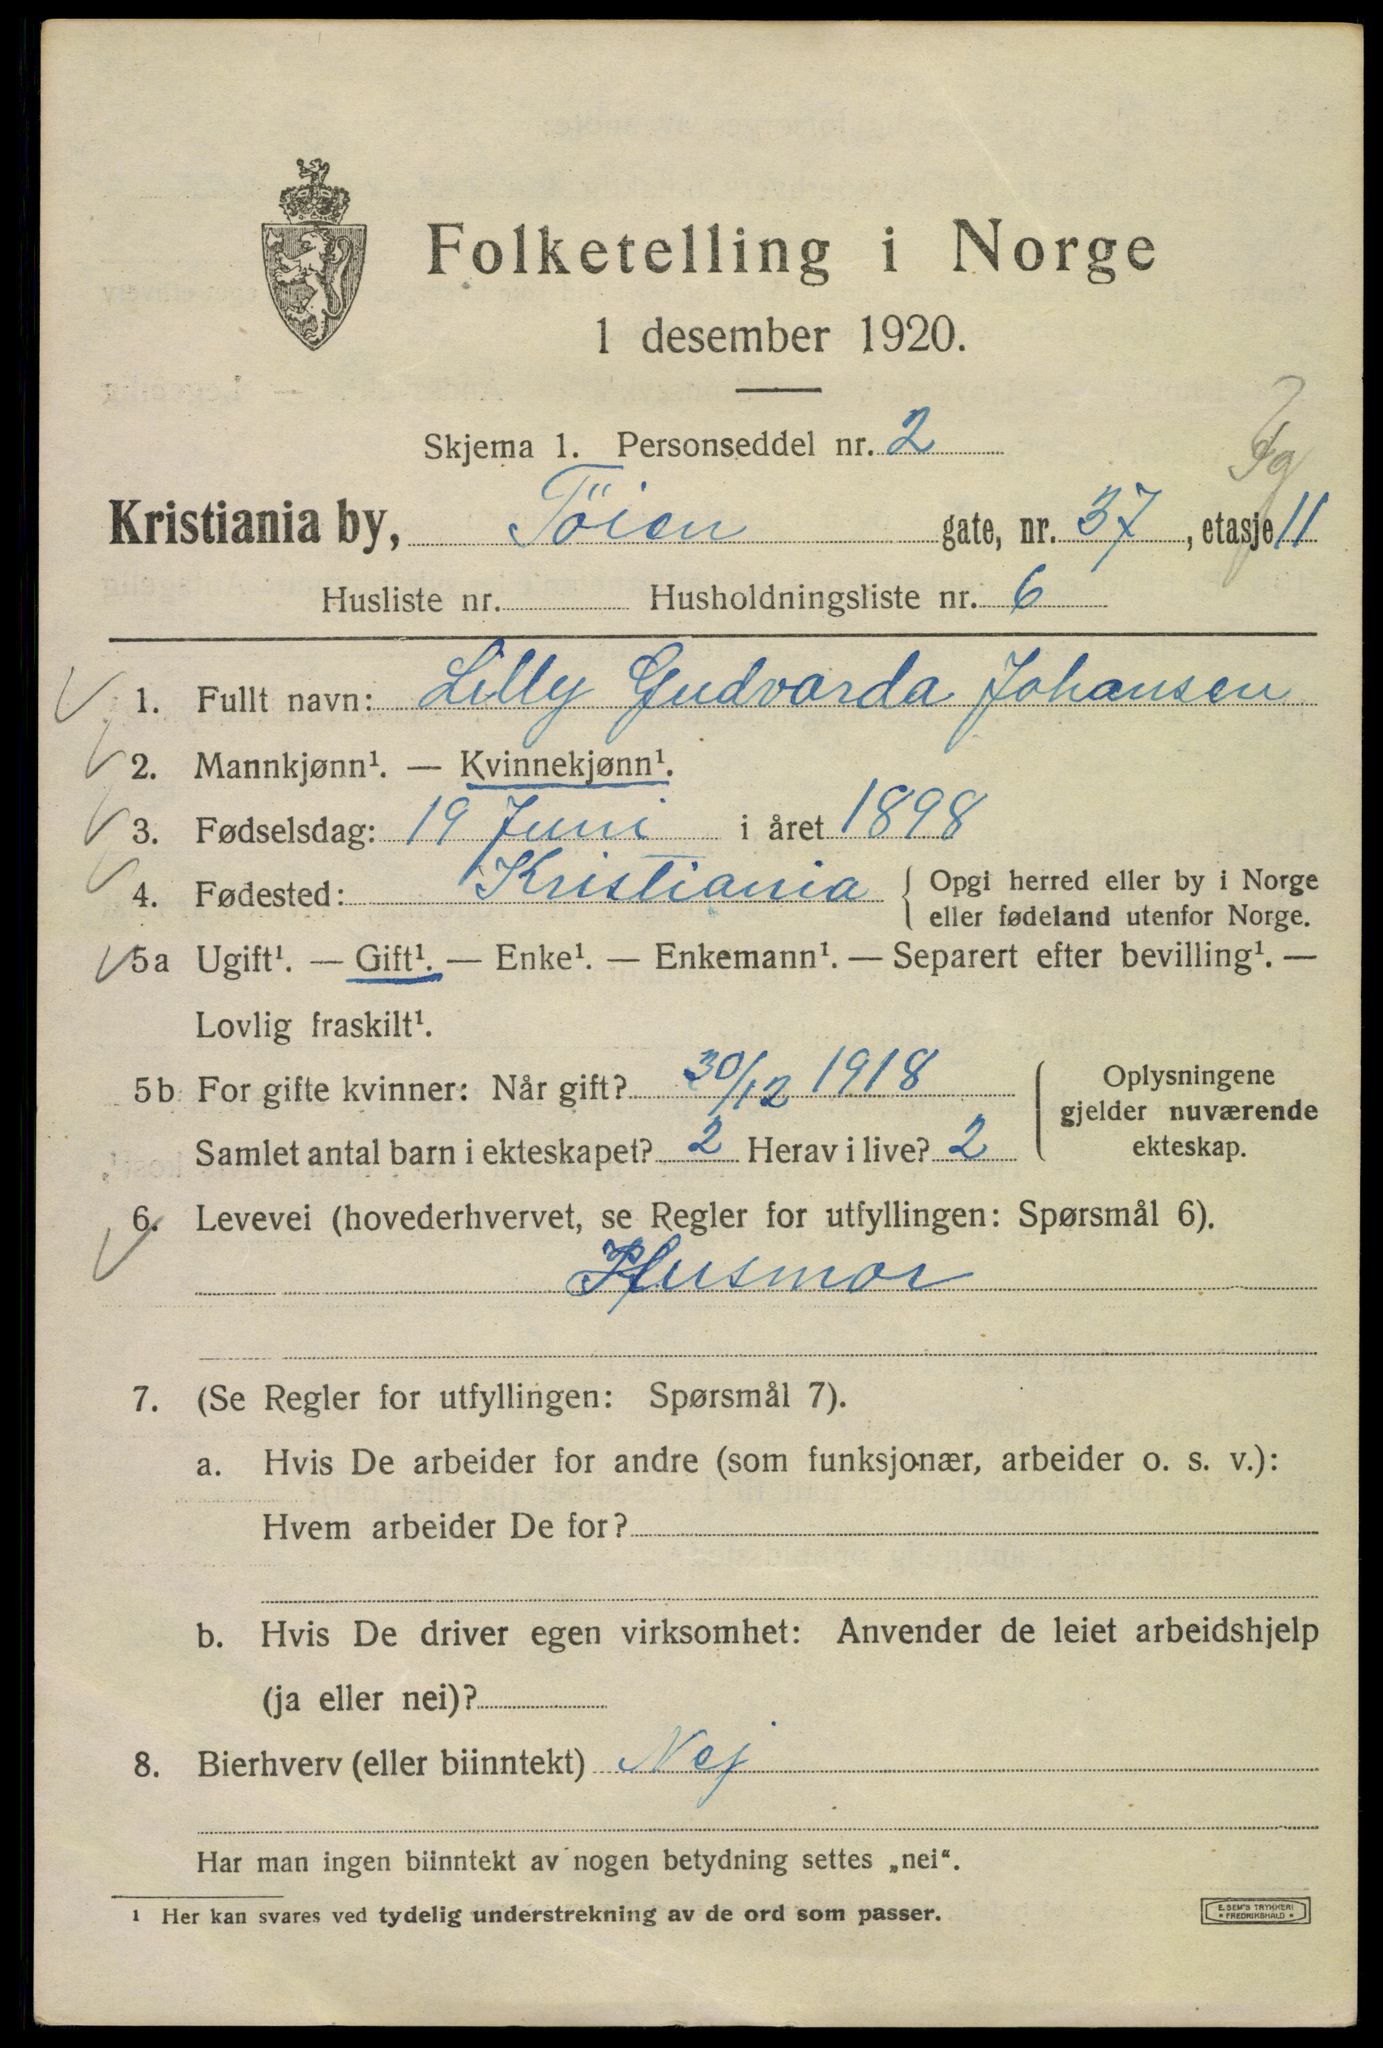 Folketelling i Norge
1 desember 1920.
Skjema 1. Personseddel nr. 2
Kristiania by, Töien gate, nr. 37, etasje 11
Husliste nr. Husholdningsliste nr. 6
1. Fullt navn: Lilly Gudvarda Johansen
2. Mannkjønn¹. — Kvinnekjønn¹.
3. Fødselsdag: 19 Juni i året 1898
4. Fødested: Kristiania { Opgi herred eller by i Norge
eller fødeland utenfor Norge.
5a Ugift¹. — Gift¹. — Enke¹. — Enkemann¹. — Separert efter bevilling¹. —
Lovlig fraskilt¹.
5b For gifte kvinner: Når gift? 30/12 1918
Samlet antal barn i ekteskapet? 2 Herav i live? 2
Oplysningene
gjelder nuværende
ekteskap.
6. Levevei (hovederhvervet, se Regler for utfyllingen: Spørsmål 6).
Husmor
7. (Se Regler for utfyllingen: Spørsmål 7).
a. Hvis De arbeider for andre (som funksjonær, arbeider o. s. v.):
Hvem arbeider De for?
b. Hvis De driver egen virksomhet: Anvender de leiet arbeidshjelp
(ja eller nei)?
8. Bierhverv (eller biinntekt) Nej
Har man ingen biinntekt av nogen betydning settes „nei“.
¹ Her kan svares ved tydelig understrekning av de ord som passer.
E. SEM'S TRYKKERI
* FREDRIKSHALD *